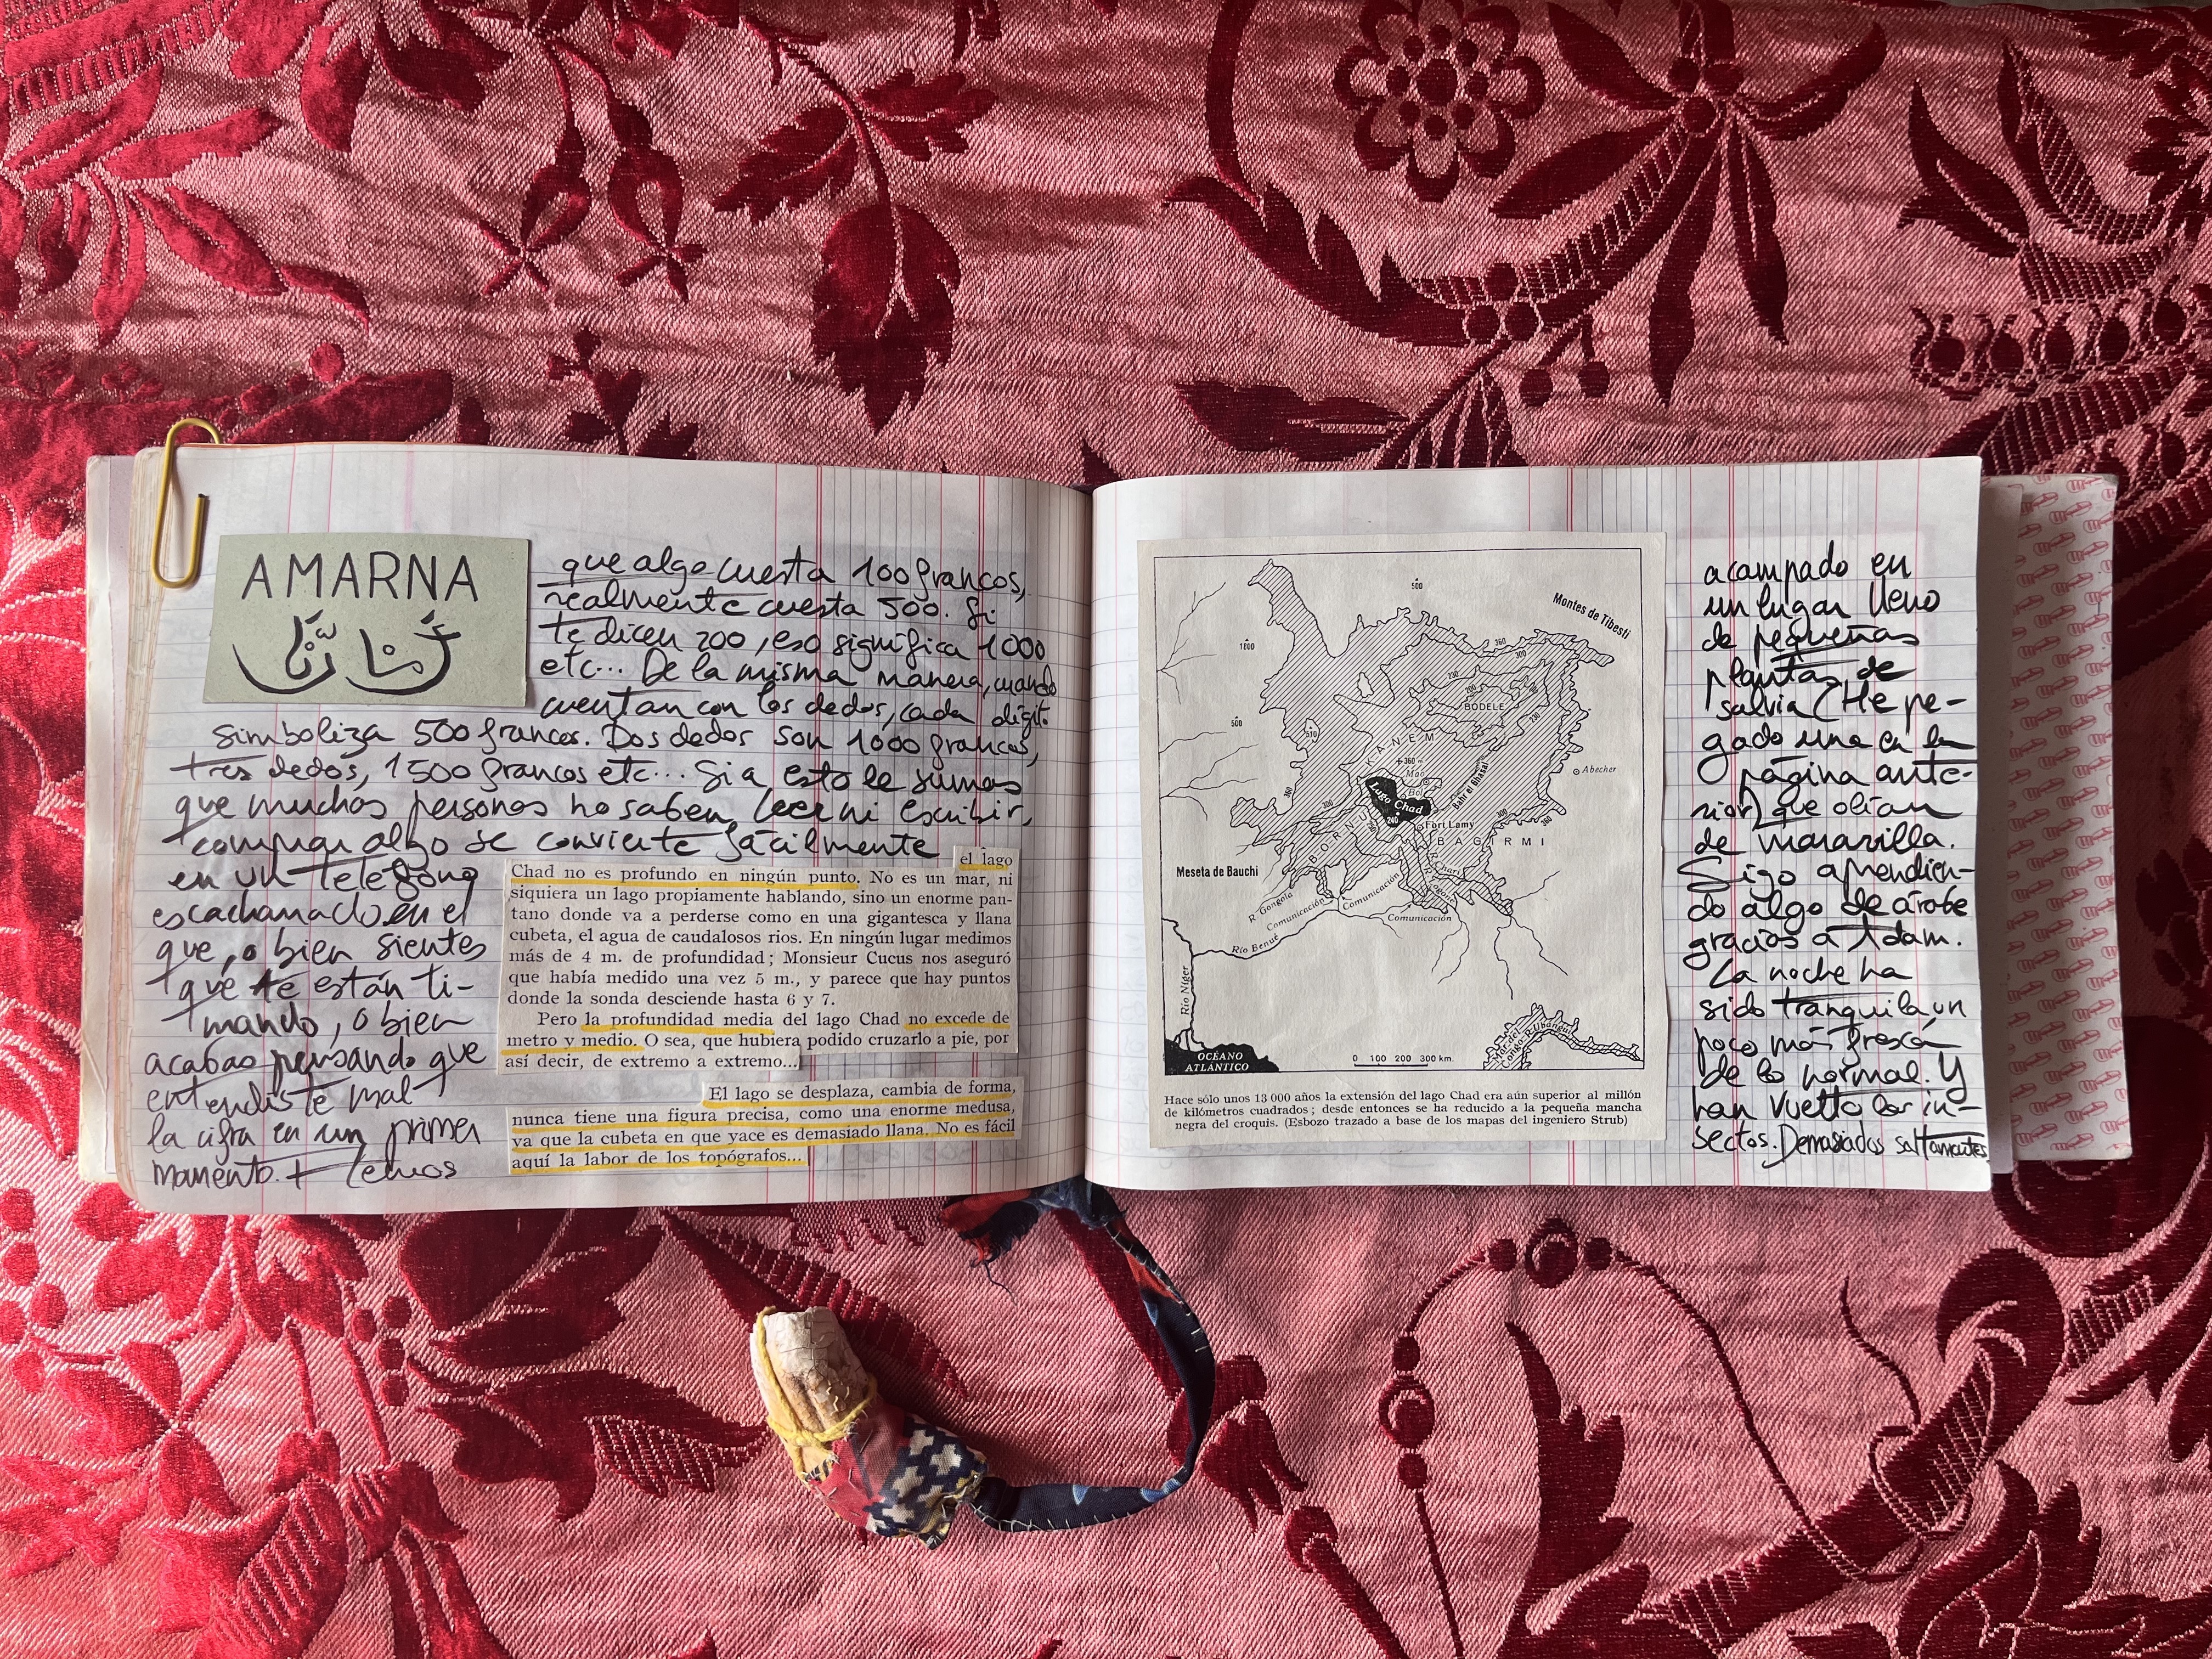 AMARNA
que algo cuesta 100 francos,
realmente cuesta 500. Si
te dicen 200, eso significa 1000
etc... De la misma manera, cuando
cuentan con los dedos, cada dígito
simboliza 500 francos. Dos dedos son 1000 francos,
tres dedos, 1500 francos etc... Si a esto le sumas
que muchas personas no saben leer ni escribir,
comprar algo se convierte fácilmente
en un teléfono
escacharrado en el
que, o bien sientes
que te están ti-
mando, o bien
acabas pensando que
entendiste mal
la cifra en un primer
momento. + Hemos
el lago
Chad no es profundo en ningún punto. No es un mar, ni
siquiera un lago propiamente hablando, sino un enorme pan-
tano donde va a perderse como en una gigantesca y llana
cubeta, el agua de caudalosos rios. En ningún lugar medimos
más de 4 m. de profundidad; Monsieur Cucus nos aseguró
que había medido una vez 5 m., y parece que hay puntos
donde la sonda desciende hasta 6 y 7.
Pero la profundidad media del lago Chad no excede de
metro y medio. O sea, que hubiera podido cruzarlo a pie, por
así decir, de extremo a extremo...
El lago se desplaza, cambia de forma,
nunca tiene una figura precisa, como una enorme medusa,
ya que la cubeta en que yace es demasiado llana. No es fácil
aquí la labor de los topógrafos...
500
Montes de Tibesti
1800
360
300
230
200
BODELE
500
310
230
KANEM
360
Mao
Bol
Bahr el Ghazal
Abecher
Lago Chad
240
360
300
300
360
Fort Lamy
BORNU
BAGIRMI
Meseta de Bauchi
R. Chari
R. Logone
R. Gongola
Comunicación
Comunicación
Comunicación
Río Benué
Río Níger
OCÉANO
ATLÁNTICO
0 100 200 300 km.
R. Ubangui
Hace sólo unos 13 000 años la extensión del lago Chad era aún superior al millón
de kilómetros cuadrados; desde entonces se ha reducido a la pequeña mancha
negra del croquis. (Esbozo trazado a base de los mapas del ingeniero Strub)
acampado en
un lugar lleno
de pequeñas
plantas de
salvia (He pe-
gado una en la
página ante-
rior) que olían
de maravilla.
Sigo aprendien-
do algo de árabe
gracias a Adam.
La noche ha
sido tranquila, un
poco más fresca
de lo normal. Y
han vuelto los in-
sectos. Demasiados saltamontes